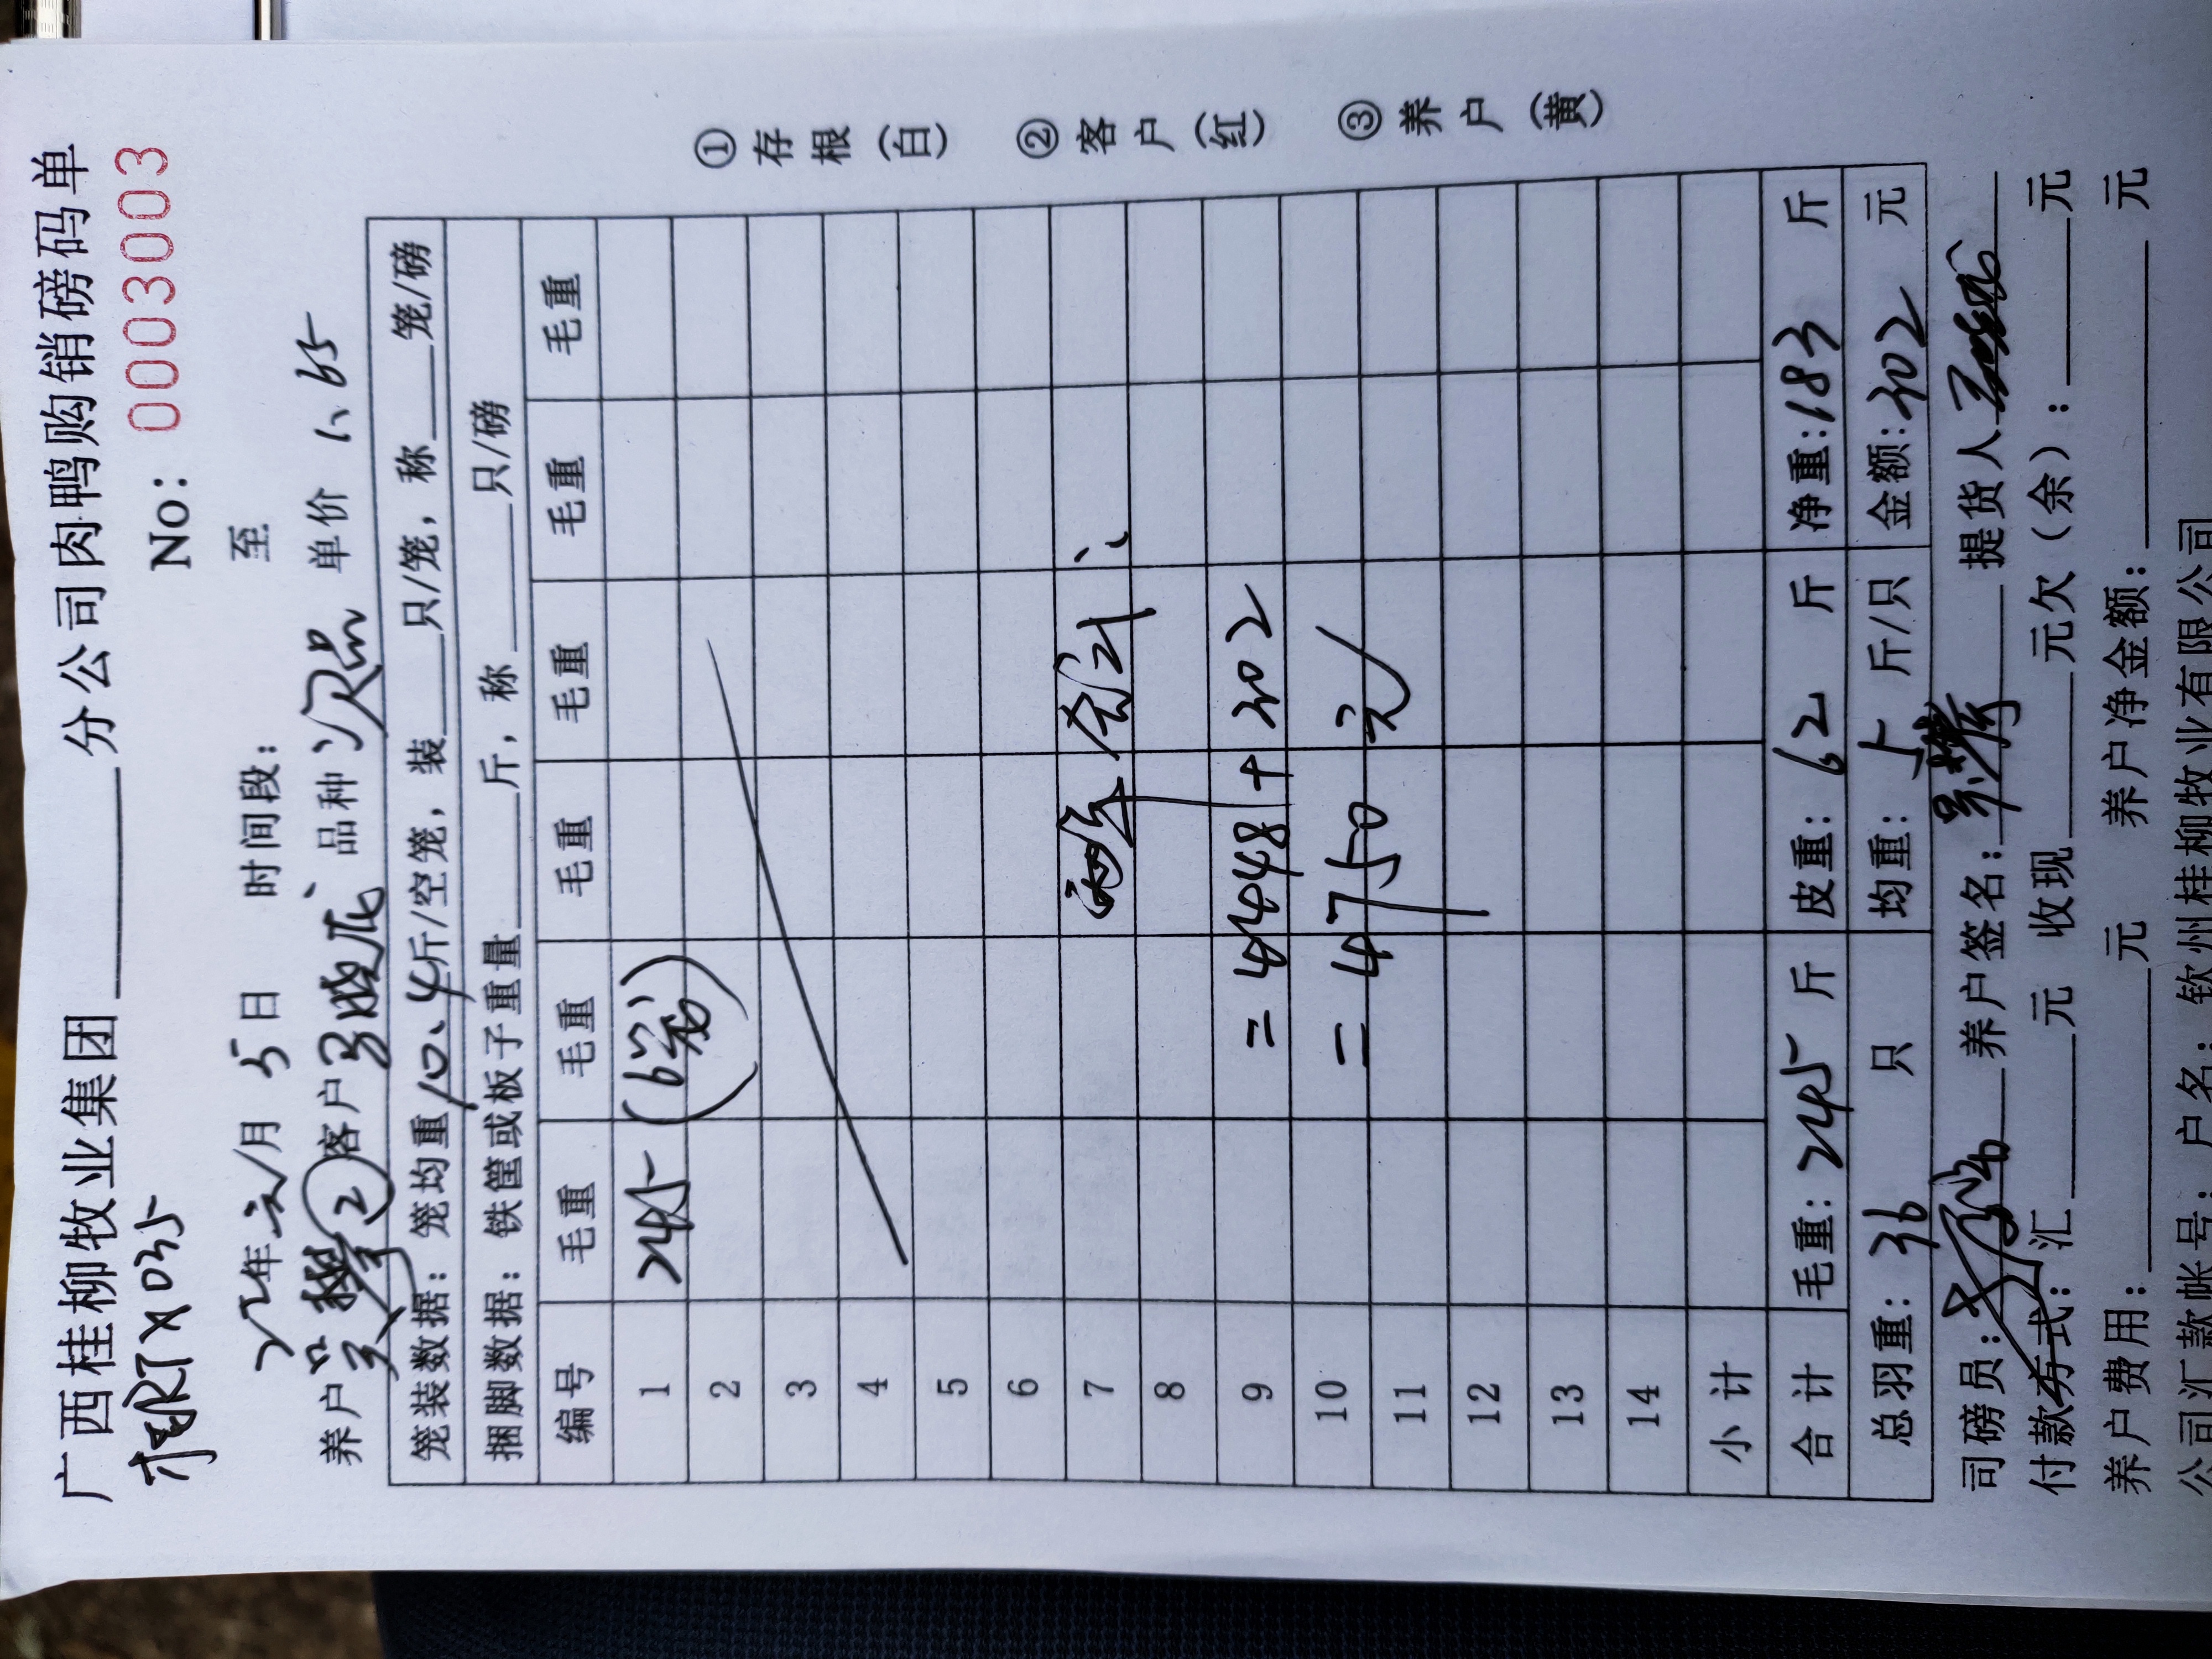 广西桂柳牧业集团______分公司肉鸭购销磅码单
No: 0003003
22年 月 5日 时间段: 至
养户 ② 客户 品种 次品 单价 1.65
笼装数据:笼均重10.4斤/空笼,装___只/笼,称___笼/磅
捆脚数据:铁筐或板子重量___斤,称___只/磅
编号 毛重 毛重 毛重 毛重 毛重 毛重
1 245 (6笼)
2
3
4
5
6
7 两单合计:
8
9 =4448+302
10 =4750元
11
12
13
14
小计
合计 毛重:245斤 皮重:62斤 净重:183斤
总羽重:36只 均重:5斤/只 金额:302元
司磅员: 养户签名: 提货人
付款方式:汇___元 收现___元欠(余):___元
养户费用:___元 养户净金额:___元
公司汇款帐号:户名:钦州桂柳牧业有限公司
①存根(白) ②客户(红) ③养户(黄)